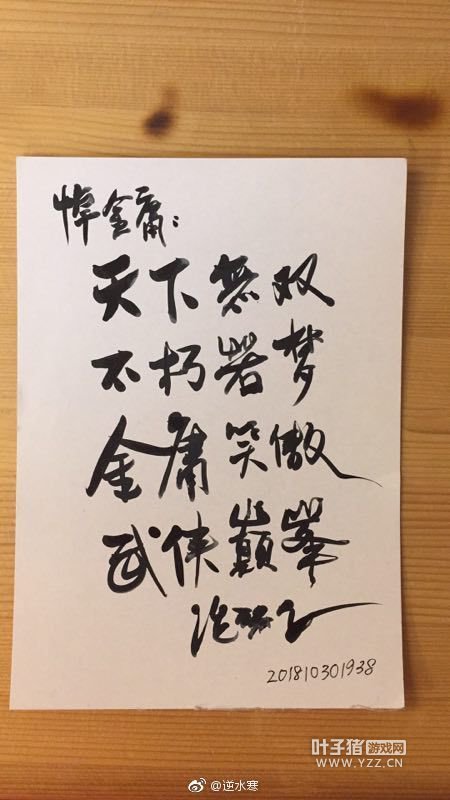 悼金庸：
天下無双
不朽若梦
金庸笑傲
武侠巅峯
温瑞安
201810301938
叶子猪 游戏网
www.YZZ.CN
@逆水寒